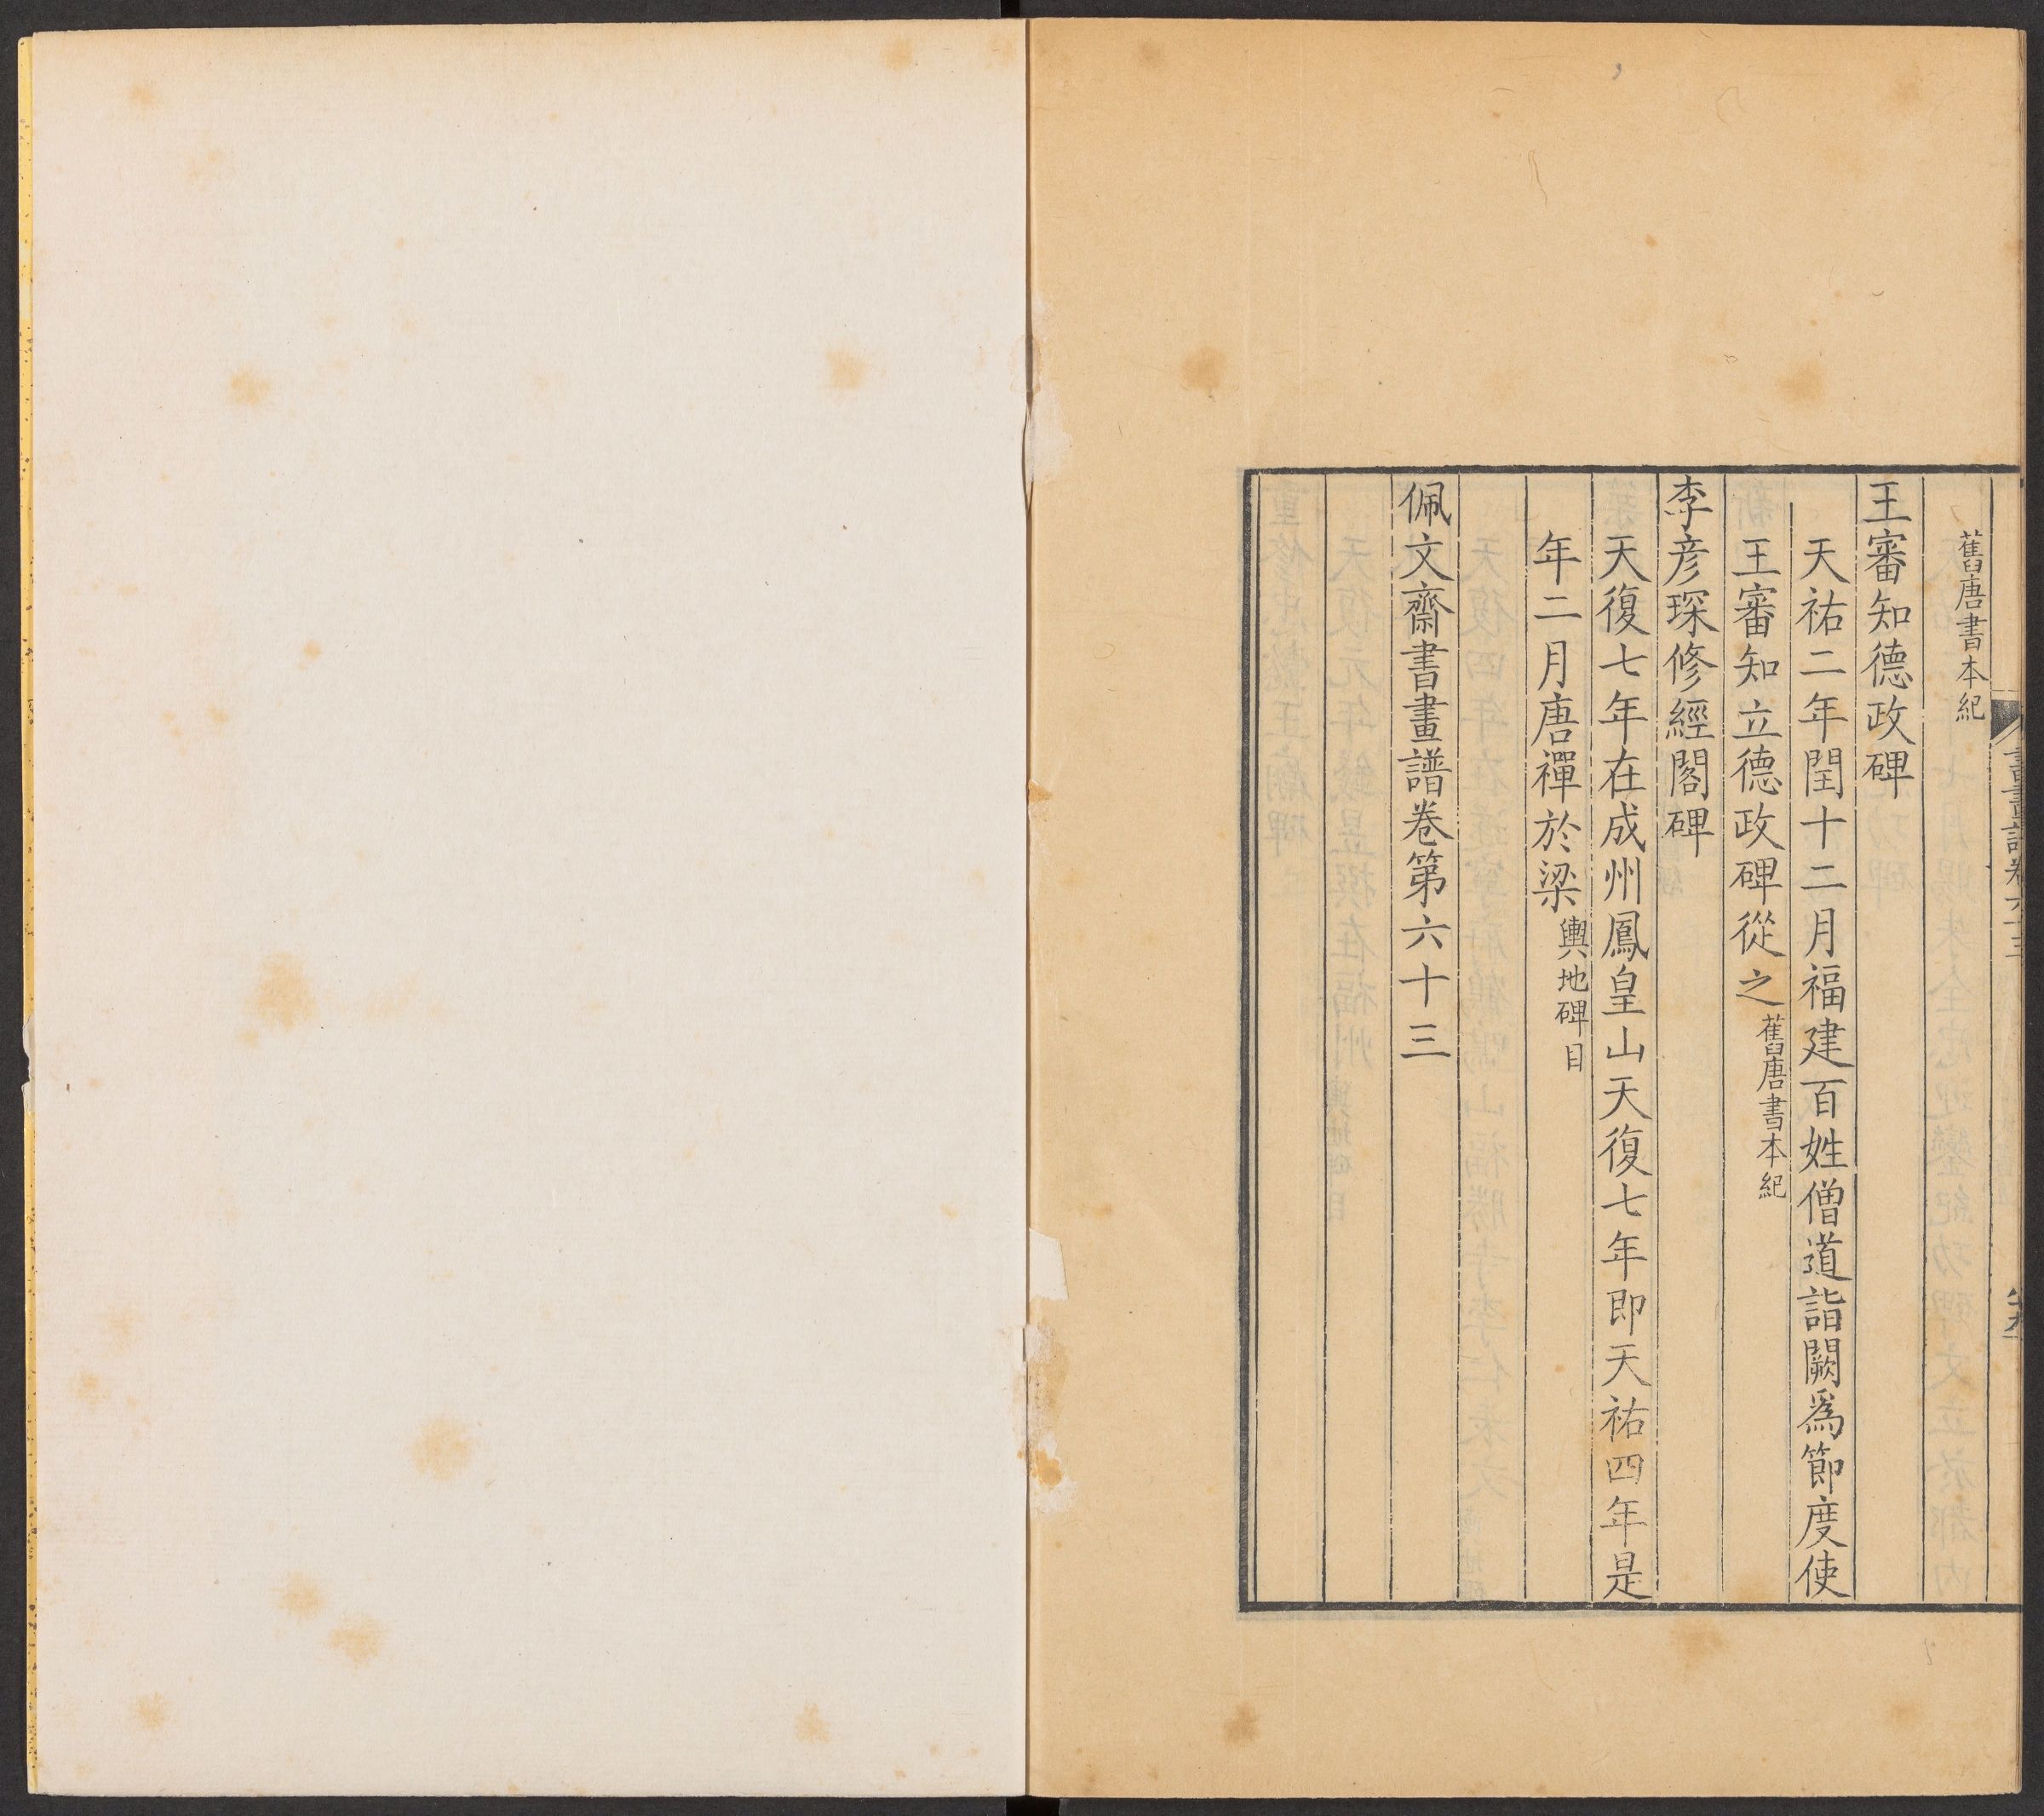 書畫譜卷六十三
舊唐書本紀
王審知德政碑
天祐二年閏十二月福建百姓僧道詣闕爲節度使
王審知立德政碑從之舊唐書本紀
李彦琛修經閣碑
天復七年在成州鳳皇山天復七年即天祐四年是
年二月唐禪於梁輿地碑目
佩文齋書畫譜卷第六十三